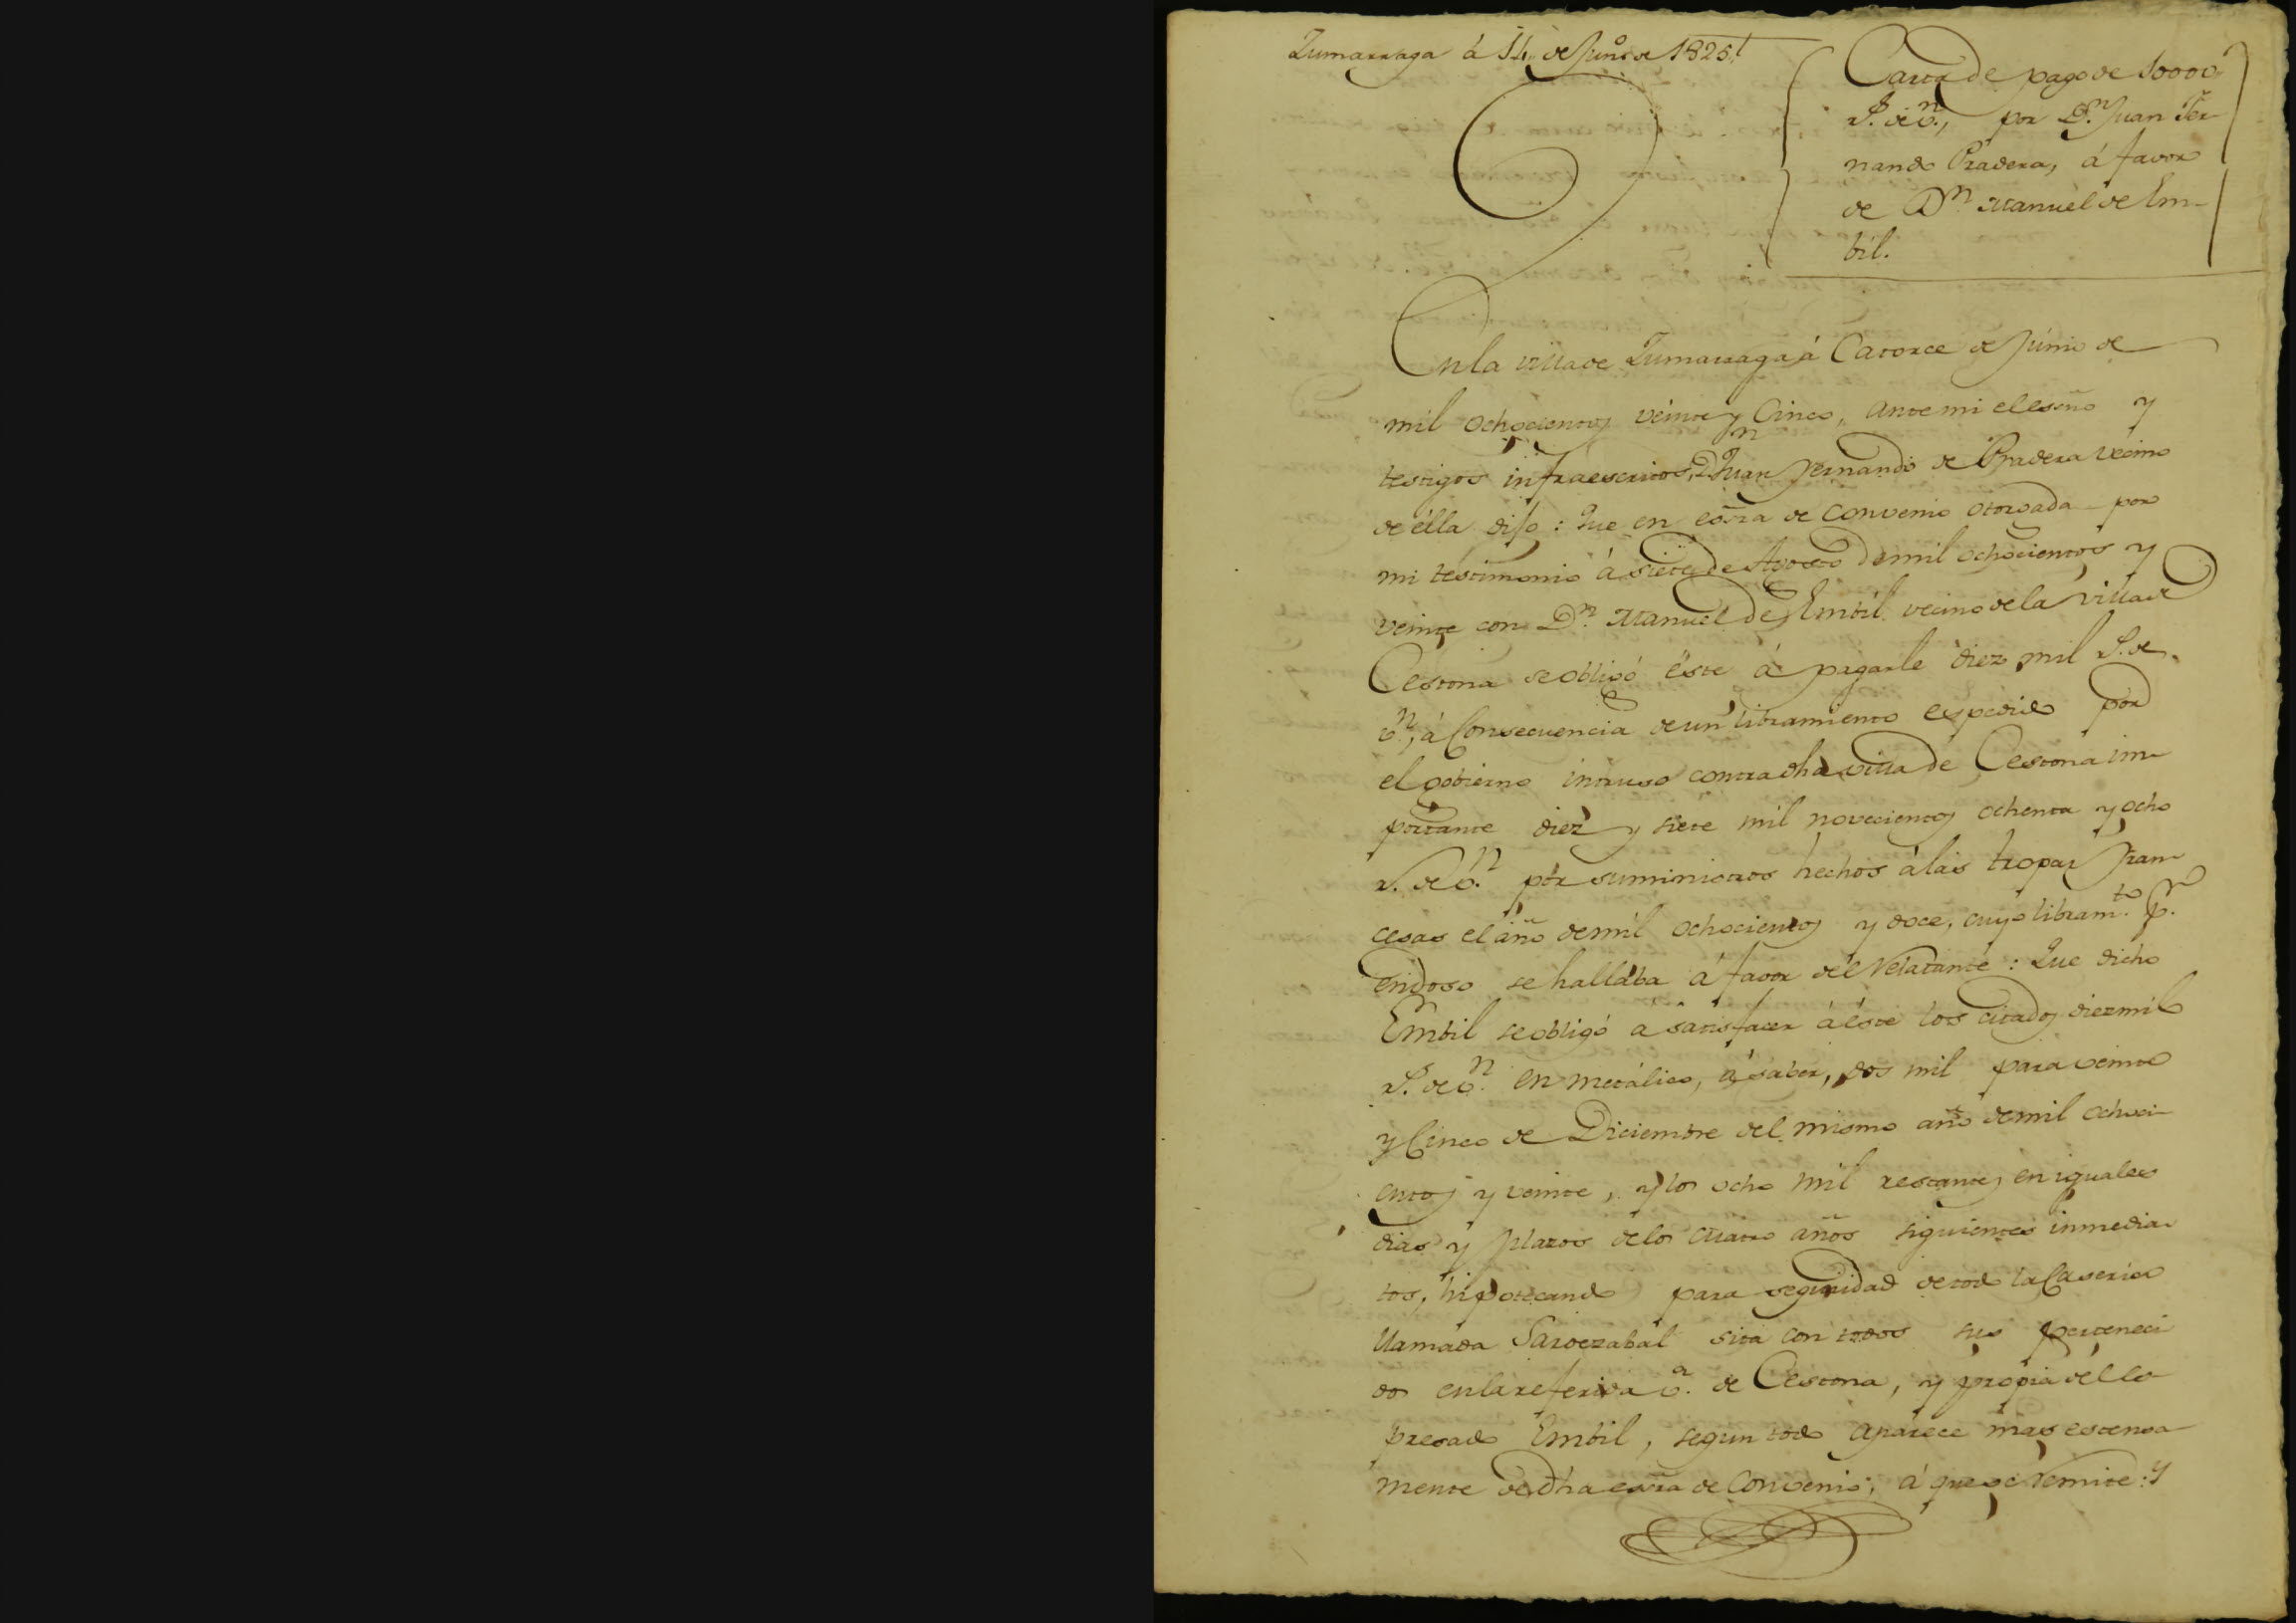 Zumarraga á 14,, de Junº de 1825,,
Carta de pago de 10000,,
rs. de vn., por Dn. Juan Fer-
nando Pradera, á favor
de Dn. Manuel de Em-
bil.
En la villa de Zumarraga á Catorce de Junio de
mil ochocientos veinte y Cinco,, ante mi el esño y
testigos infraescritos, Dn Juan Fernando de Pradera vecino
de élla dijo: Que en esrra de convenio otorgada por
mi testimonio á siete de Agosto de mil ochocientos y
veinte con Dn. Manuel de Embil vecino de la villa de
Cestona se obligó éste á pagarle diez mil rs. de
vn., á Consecuencia de un libramiento expedido por
el gobierno intruso contra dha villa de Cestona im-
portante diez y siete mil novecientos ochenta y ocho
rs. de vn. por suministros hechos á las tropas fran-
cesas el año de mil ochocientos y doce, cuyo libramto. pr.
endoso se hallaba á favor del Relatante: Que dicho
Embil se obligó a satisfacer á éste los citados diez mil
rs. de vn. en metálico, á saber, dos mil para veinte
y Cinco de Diciembre del mismo año de mil ochoci-
entos y veinte, y los ocho mil restantes en iguales
dias y plazos de los cuatro años siguientes inmedia-
tos, hipotecando para seguridad de todo la Caseria
llamada Saroezabal sita con todos sus perteneci
dos en la referida va. de Cestona, y propia del es
presado Embil, segun todo aparece mas estensa-
mente de dha esrra de Convenio; á que se remite: Y